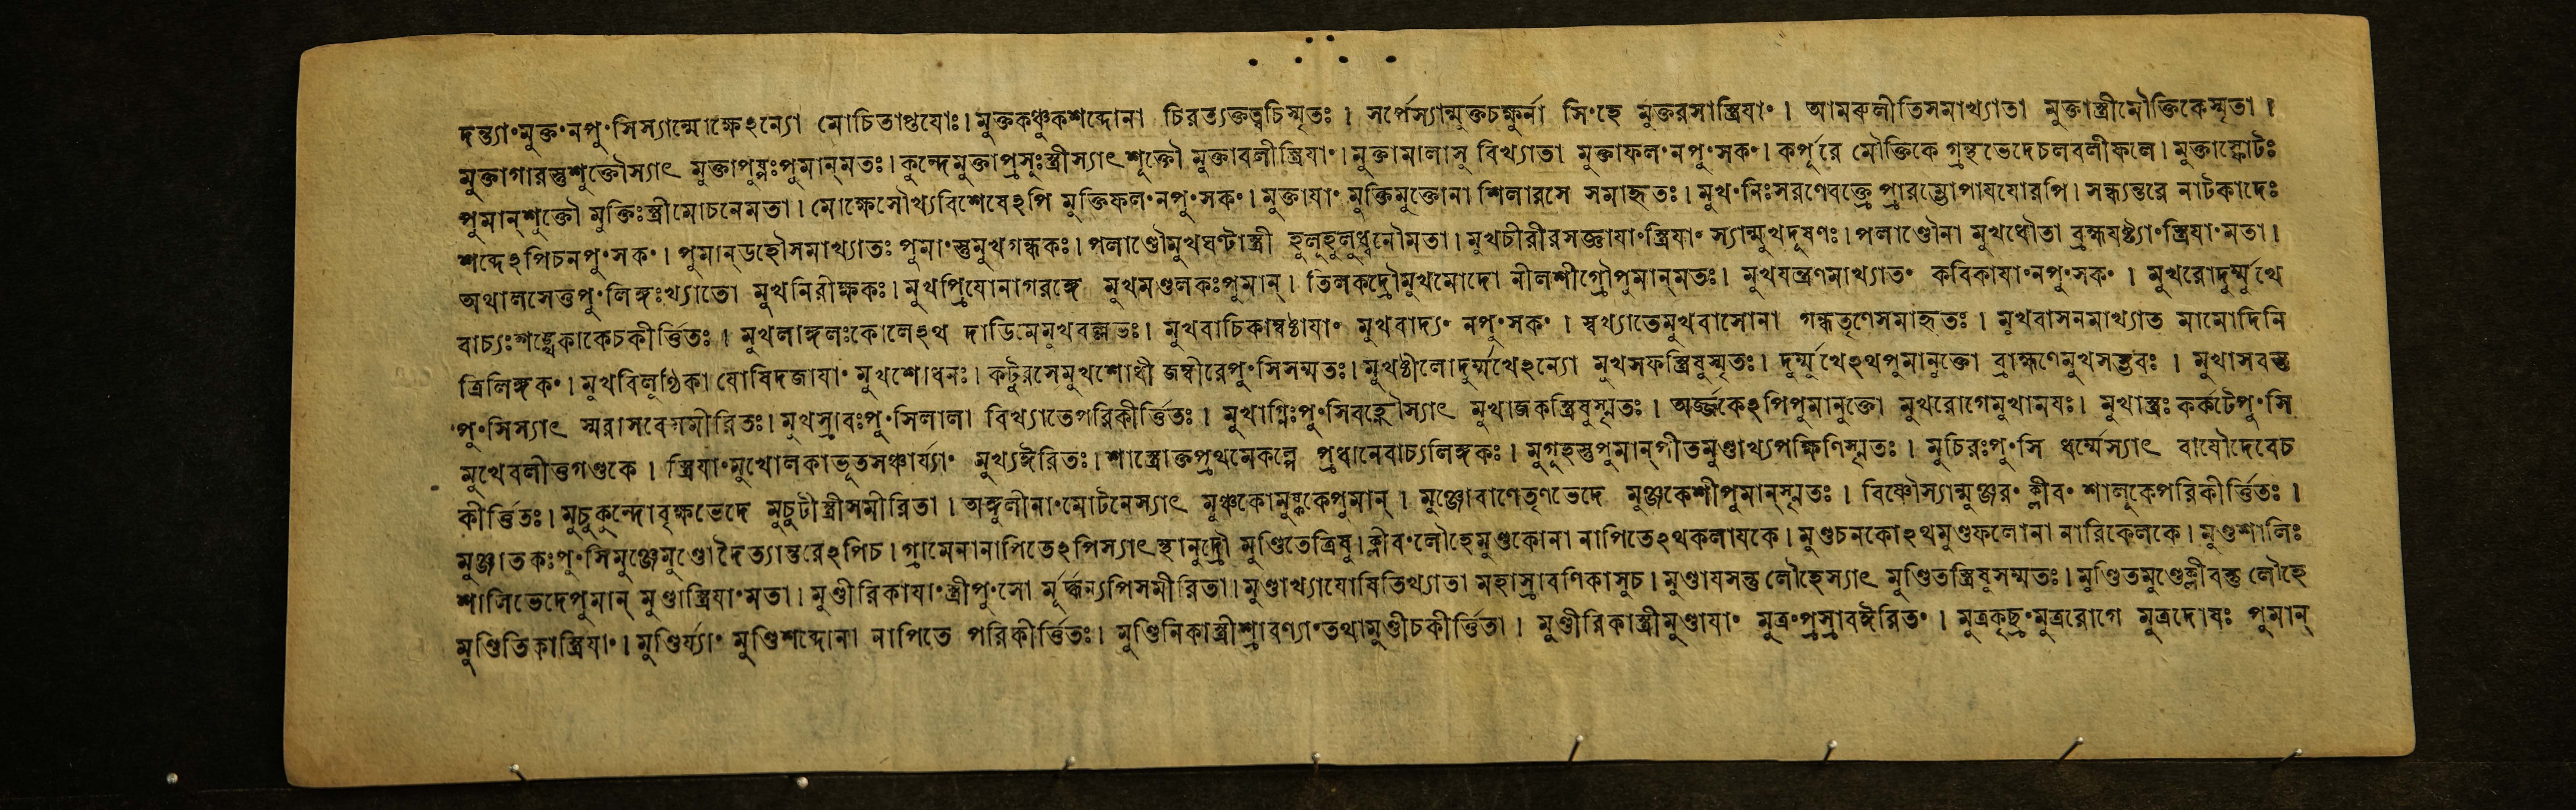 দন্ত্যা°মুক্ত°নপু°সিস্যান্মোক্ষেঽন্যো মোচিতাপ্তযোঃ। মুক্তকঞ্চুকশব্দোনা চিরত্যক্তত্বচিস্মৃতঃ । সর্পেস্যান্মুক্তচক্ষুর্না সি°হে মুক্তরসাস্ত্রিযা° । আমৰুলীতিসমাখ্যাতা মুক্তাস্ত্রীমৌক্তিকেস্মৃতা ।
মুক্তাগারস্তুশুক্তৌস্যাৎ মুক্তাপুষ্পঃপুমান্মতঃ। কুন্দেমুক্তাপ্রসুঃস্ত্রীস্যাৎশূক্তৌ মুক্তাবলীস্ত্রিযা°। মুক্তামালাসু বিখ্যাতা মুক্তাফল°নপু°সক°। কর্পূরে মৌক্তিকে গ্রন্থভেদেচলবলীফলে। মুক্তাস্ফোটঃ
পুমান্শূক্তৌ মুক্তিঃস্ত্রীমোচনেমতা। মোক্ষেসৌখ্যবিশেষেঽপি মুক্তিফল°নপু°সক°। মুক্তাযা° মুক্তিমুক্তোনা শিলারসে সমাহৃতঃ। মুখ°নিঃসরণেবক্ত্রে প্রারম্ভোপাযযোরপি। সন্ধ্যন্তরে নাটকাদেঃ
শব্দেঽপিচনপু°সক°। পুমান্ডহৌসমাখ্যাতঃ পুমা°স্তুমুখগন্ধকঃ। পলাণ্ডৌমুখঘণ্টাস্ত্রী হুলুহুলুধ্বনৌমতা। মুখচীরীরসজ্ঞাযা°স্ত্রিযা° স্যান্মুখদূষণঃ। পলাণ্ডৌনা মুখধৌতা ব্রহ্মযষ্ট্যা°স্ত্রিযা°মতা।
অথালসেত্তপু°লিঙ্গঃখ্যাতো মুখনিরীক্ষকঃ। মুখপ্রিযোনাগরঙ্গে মুখমণ্ডলকঃপুমান্। তিলকদ্রৌমুখমোদো নীলশীগ্রৌপুমান্মতঃ। মুখযন্ত্রণমাখ্যাত° কবিকাযা°নপু°সক° । মুখরোদুর্ম্মুখে
বাচ্যঃশঙ্খেকাকেচকীর্ত্তিতঃ । মুখলাঙ্গলঃকোলেঽথ দাডিমেমুখবল্লভঃ। মুখবাচিকাম্বষ্ঠাযা° মুখবাদ্য° নপু°সক° । স্বখ্যাতেমুখবাসোনা গন্ধতৃণেসমাহৃতঃ । মুখবাসনমাখ্যাত মামোদিনি
ত্রিলিঙ্গক°। মুখবিলুণ্ঠিকা যোষিদজাযা° মুখশোধনঃ। কটুরসেমুখশোধী জম্বীরেপু°সিসম্মতঃ। মুখষ্ঠীলোদুর্ম্মখেঽন্যো মুখসফস্ত্রিষুস্মৃতঃ। দুর্ম্মুখেঽথপুমানুক্তো ব্রাহ্মণেমুখসম্ভবঃ । মুখাসবস্তু
পু°সিস্যাৎ স্মরাসবেসমীরিতঃ। মুখস্রাবঃপু°সিলালা বিখ্যাতেপরিকীর্ত্তিতঃ । মুখাগ্নিঃপু°সিবহ্নৌস্যাৎ মুখার্জকস্ত্রিষুস্মৃতঃ । অর্জ্জকেঽপিপুমানুক্তো মুখরোগেমুখামযঃ। মুখাস্ত্রঃ কর্কটেপু°সি
মুখেবলীত্তগণ্ডকে । স্ত্রিযা°মুখোলকাভূতসঞ্চার্য্যা° মুখ্যঈরিতঃ। শাস্ত্রোক্তপ্রথমেকল্পে প্রধানেবাচ্যলিঙ্গকঃ। মুগূহস্তুপুমান্পীতমুণ্ডাখ্যপক্ষিণিস্মৃতঃ । মুচিরঃপু°সি ধর্ম্মেস্যাৎ বাযৌদেবেচ
কীর্ত্তিতঃ। মুচুকুন্দোবৃক্ষভেদে মুচুটীস্ত্রীসমীরিতা । অঙ্গুলীনা°মোটনেস্যাৎ মুঞ্চকোমুষ্ককেপুমান্ । মুঞ্জোবাণেতৃণভেদে মুঞ্জকেশীপুমান্স্মৃতঃ । বিষ্ণৌস্যান্মুঞ্জর° ক্লীব° শালূকেপরিকীর্ত্তিতঃ ।
মুঞ্জাতকঃপু°সিমুঞ্জেমুণ্ডোদৈত্যান্তরেঽপিচ। গ্রামেনানাপিতেঽপিস্যাৎস্থানুদ্রৌ মুণ্ডিতেত্রিষু। ক্লীব°লৌহেমুণ্ডকোনা নাপিতেঽথকলাযকে। মুণ্ডচনকোঽথমুণ্ডফলোনা নারিকেলকে। মুণ্ডশালিঃ
শালিভেদেপুমান্ মুণ্ডাস্ত্রিযা°মতা। মুণ্ডীরিকাযা°স্ত্রীপু°সো র্মূর্দ্ধন্যপিসমীরিতা। মুণ্ডাখ্যাযোষিতিখ্যাতা মহাস্রাবণিকাসুচ। মুণ্ডাযসন্তু লৌহেস্যাৎ মুণ্ডিতস্ত্রিষুসম্মতঃ। মুণ্ডিতমুণ্ডেক্লীবন্তু লৌহে
মুণ্ডিতিকাস্ত্রিযা°। মুণ্ডির্য্যা° মুণ্ডিশব্দোনা নাপিতে পরিকীর্ত্তিতঃ। মুণ্ডিনিকাস্ত্রীশ্রাবণ্যা°তথামুণ্ডীচকীর্ত্তিতা। মুণ্ডীরিকাস্ত্রীমুণ্ডাযা° মুত্র°প্রস্রাবঈরিত°। মুত্রকৃচ্ছ্র°মুত্ররোগে মুত্রদোষঃ পুমান্